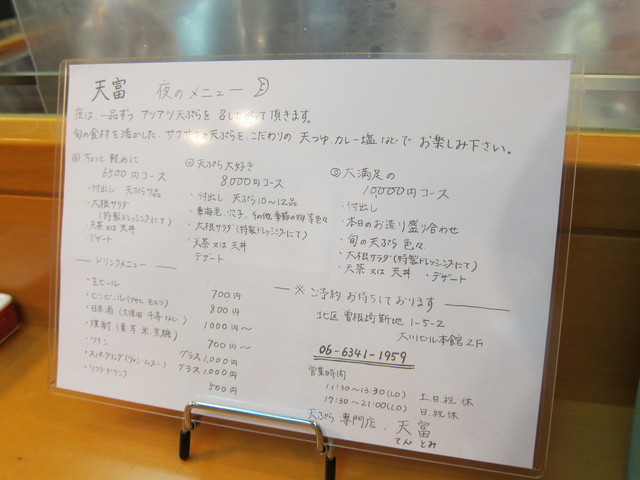 天富 夜のメニュー
夜は、一品ずつ アツアツ天ぷらを 召し上がって頂きます。
旬の食材を活かした、サクサクの天ぷらを、こだわりの 天つゆ、カレー塩などで お楽しみ下さい。
ちょっと軽めに
6500円コース
・付出し 天ぷら7品
・大根サラダ
(特製ドレッシングにて)
・天茶又は天丼
・デザート
天ぷら大好き
8,000円コース
・付出し 天ぷら10〜12品
・車海老、穴子、その他季節の物等色々
・大根サラダ(特製ドレッシングにて)
・天茶又は天丼
・デザート
大満足の
10,000円コース
・付出し
・本日のお造り盛り合わせ
・旬の天ぷら 色々
・大根サラダ(特製ドレッシングにて)
・天茶 又は 天丼 ・デザート
ドリンクメニュー
・生ビール 700円
・ビンビール(アサヒ モルツ) 800円
・日本酒(久保田 千寿 なし) 1000円〜
・焼酎(麦 芋 米 黒糖) 700円〜
・ワイン グラス 1,000円
・スパークリング グラス 1,000円
・ソフトドリンク 500円
※ ご予約 お待ちしております
北区 曽根崎新地 1-5-2
大川ビル本館 2F
06-6341-1959
営業時間
11:30〜13:30(LO) 土日祝 休
17:30〜21:00(LO) 日.祝休
天ぷら 専門店. 天富
てん とみ